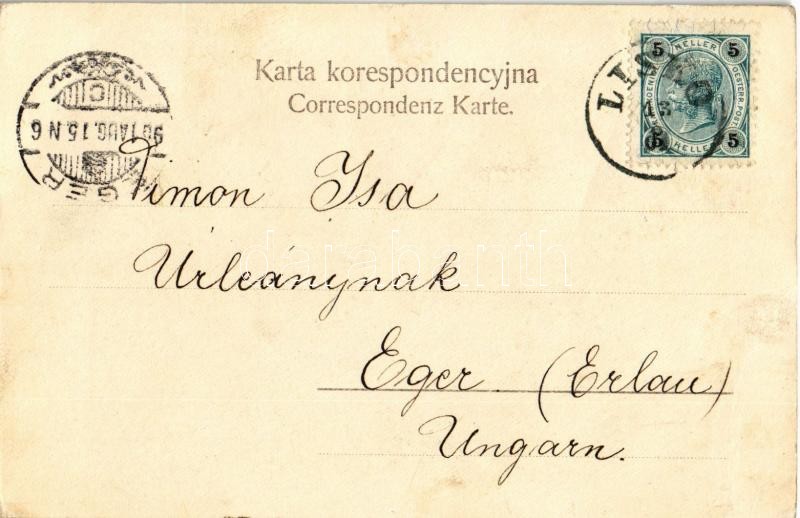 Karta korespondencyjna
Correspondenz Karte.
5 HELLER 5
5 HELLER 5
EGER
901 AUG. 15. N 6
C
Timon Isa
Urleánynak
Eger. (Erlau)
Ungarn.
darabanth